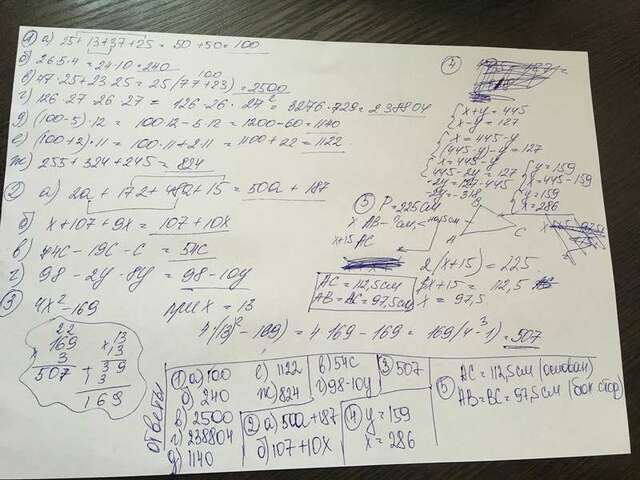 ① а) 25+13+37+25 = 50+50=100
б) 26·5·4 = 24·10=240
в) 47·25+23·25 = 25(77+23)=2500
100
г) 126·27·26·27 = 126·26·27² = 3276·729=238804
д) (100-5)·12 = 100·12-5·12=1200-60=1140
е) (100+2)·11 = 100·11+2·11=1100+22=1122
ж) 255+324+245=824
② а) 2a+172+48a+15=50a+187
б) x+107+9x=107+10x
в) 74c-19c-c=54c
г) 98-2y·8y=98-10y
③ 4x²-169 при x=13
4·(13)²-169)=4·169-169=169(4-1)=507
3
22
169
× 3
507
13
×13
39
+13
169
④
x+y=445
x-y=127
x=445-y
(445-y)-y=127
x=445-y
445-2y=127
-2y=127-445
-2y=-318
y=159
x=445-159
y=159
x=286
⑤ P=225см
x AB-
x+15 AC
B
A
C
2(x+15)=225
x+15=112,5
x=97,5
AC=112,5см
AB=BC=97,5см
ответы
① а) 100
б) 240
в) 2500
г) 238804
д) 1140
е) 1122
ж) 824
② а) 50a+187
б) 107+10x
в) 54c
г) 98-10y
③ 507
④ y=159
x=286
⑤ AC=112,5см (основан)
AB=BC=97,5см (бок. стор)